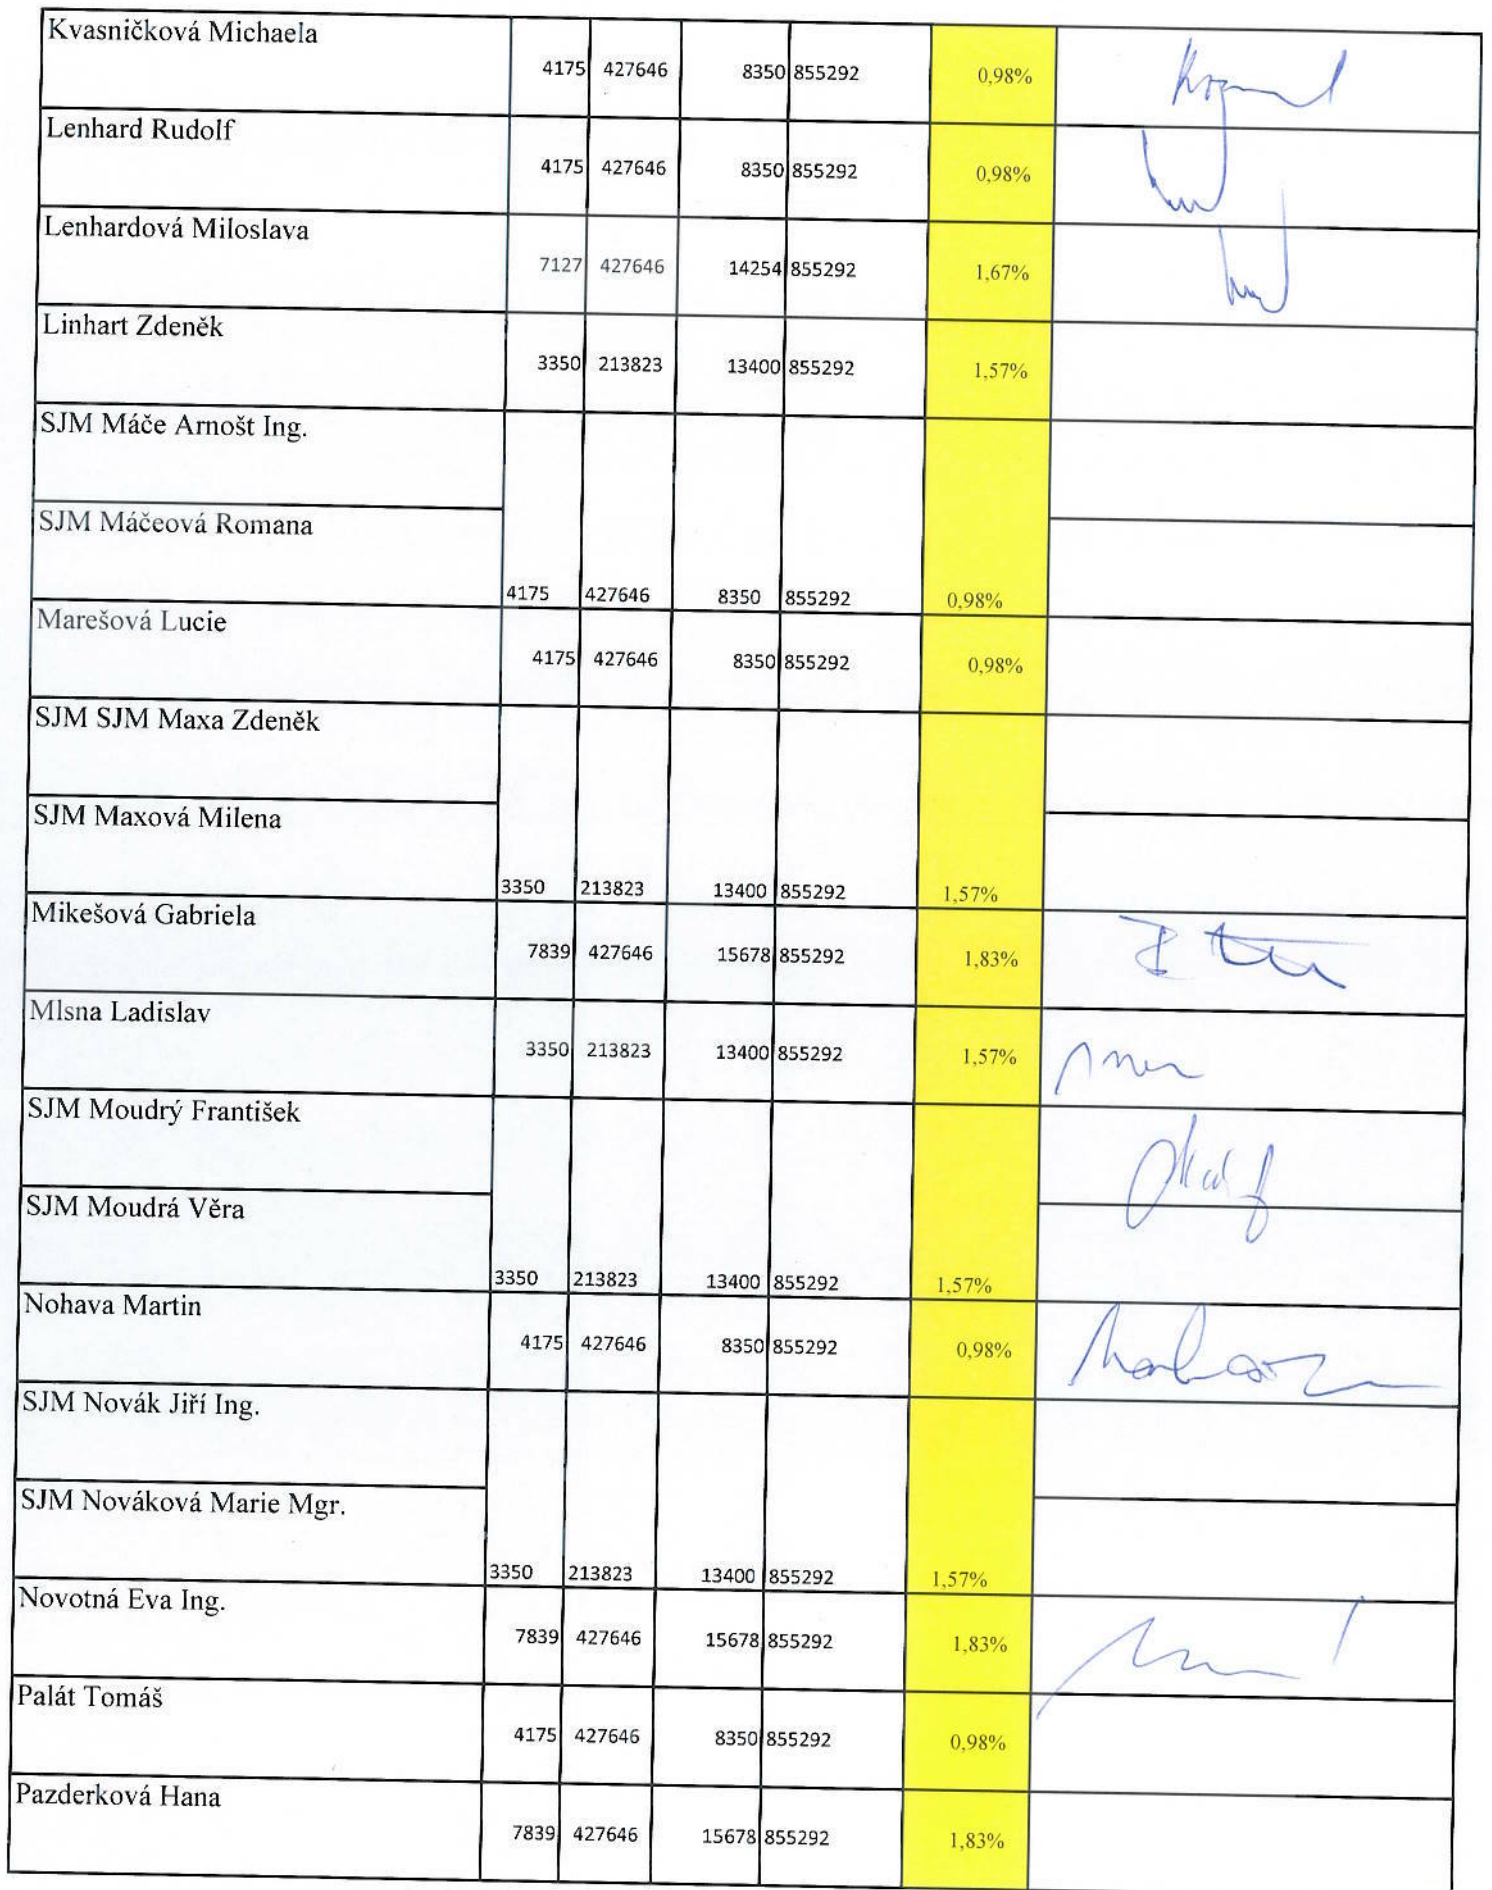 Kvasničková Michaela
4175 427646 8350 855292 0,98%
Lenhard Rudolf
4175 427646 8350 855292 0,98%
Lenhardová Miloslava
7127 427646 14254 855292 1,67%
Linhart Zdeněk
3350 213823 13400 855292 1,57%
SJM Máče Arnošt Ing.
SJM Máčeová Romana
4175 427646 8350 855292 0,98%
Marešová Lucie
4175 427646 8350 855292 0,98%
SJM SJM Maxa Zdeněk
SJM Maxová Milena
3350 213823 13400 855292 1,57%
Mikešová Gabriela
7839 427646 15678 855292 1,83%
Mlsna Ladislav
3350 213823 13400 855292 1,57%
SJM Moudrý František
SJM Moudrá Věra
3350 213823 13400 855292 1,57%
Nohava Martin
4175 427646 8350 855292 0,98%
SJM Novák Jiří Ing.
SJM Nováková Marie Mgr.
3350 213823 13400 855292 1,57%
Novotná Eva Ing.
7839 427646 15678 855292 1,83%
Palát Tomáš
4175 427646 8350 855292 0,98%
Pazderková Hana
7839 427646 15678 855292 1,83%